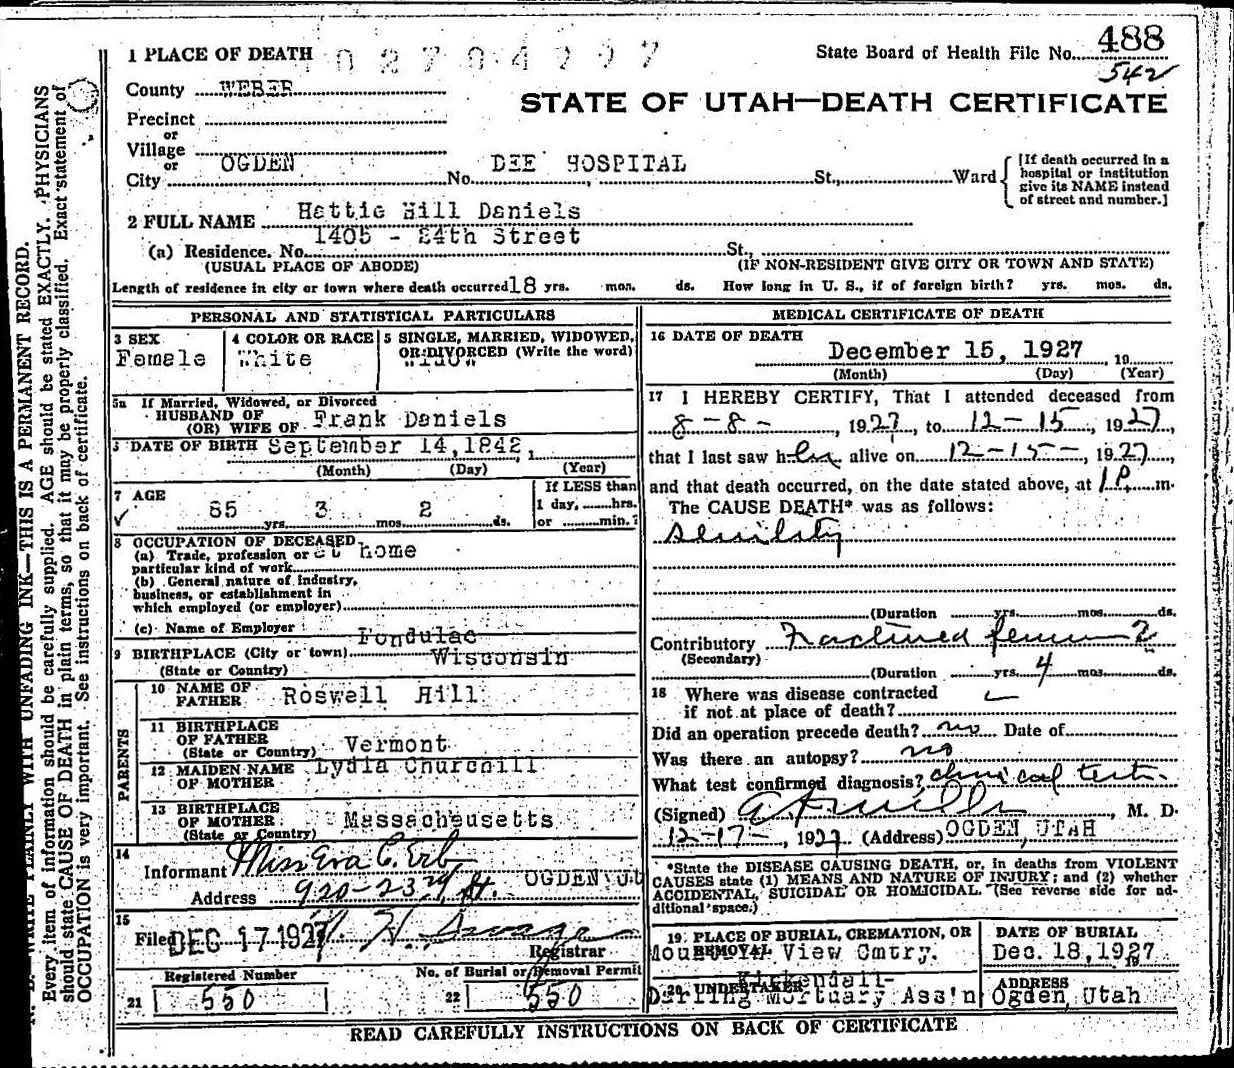 1 PLACE OF DEATH
State Board of Health File No. 488
542
County WEBER
STATE OF UTAH—DEATH CERTIFICATE
Precinct
or
Village
or
City OGDEN No. DEE HOSPITAL St., Ward
[If death occurred in a
hospital or institution
give its NAME instead
of street and number.]
2 FULL NAME Hattie Hill Daniels
(a) Residence. No. 1405 - 24th Street St.,
(USUAL PLACE OF ABODE) (IF NON-RESIDENT GIVE CITY OR TOWN AND STATE)
Length of residence in city or town where death occurred 18 yrs. mos. ds. How long in U. S., if of foreign birth? yrs. mos. ds.
PERSONAL AND STATISTICAL PARTICULARS
3 SEX
Female
4 COLOR OR RACE
White
5 SINGLE, MARRIED, WIDOWED,
OR DIVORCED (Write the word)
Widow
5a If Married, Widowed, or Divorced
HUSBAND OF
(OR) WIFE OF Frank Daniels
DATE OF BIRTH September 14, 1842,
(Month) (Day) (Year)
7 AGE
85 yrs. 3 mos. 2 ds.
If LESS than
1 day, hrs.
or min.?
8 OCCUPATION OF DECEASED
(a) Trade, profession or at home
particular kind of work
(b) General nature of industry,
business, or establishment in
which employed (or employer)
(c) Name of Employer
9 BIRTHPLACE (City or town) Fondulac
(State or Country) Wisconsin
PARENTS
10 NAME OF
FATHER Roswell Hill
11 BIRTHPLACE
OF FATHER
(State or Country) Vermont
12 MAIDEN NAME
OF MOTHER Lydia Churchill
13 BIRTHPLACE
OF MOTHER
(State or Country) Massacheusetts
14
Informant Miss Eva C. Erb
Address 920-23rd St. OGDEN UT
15
Filed DEC 17 1927 H. Savage
Registrar
Registered Number
21 550
No. of Burial or Removal Permit
22 550
MEDICAL CERTIFICATE OF DEATH
16 DATE OF DEATH
December 15, 1927 19
(Month) (Day) (Year)
17 I HEREBY CERTIFY, That I attended deceased from
8-8-, 1927, to 12-15, 1927,
that I last saw her alive on 12-15-, 1927,
and that death occurred, on the date stated above, at 1 P. m.
The CAUSE DEATH* was as follows:
Senility
(Duration yrs. mos. ds.
Contributory Fractured femur
(Secondary)
(Duration yrs. 4 mos. ds.
18 Where was disease contracted
if not at place of death?
Did an operation precede death? no Date of
Was there an autopsy? no
What test confirmed diagnosis? clinical test.
(Signed) M. D.
12-17-, 1927 (Address) OGDEN, UTAH
*State the DISEASE CAUSING DEATH, or, in deaths from VIOLENT
CAUSES state (1) MEANS AND NATURE OF INJURY; and (2) whether
ACCIDENTAL, SUICIDAL OR HOMICIDAL. (See reverse side for ad-
ditional space.)
19 PLACE OF BURIAL, CREMATION, OR
REMOVAL
Mountain View Cmtry.
DATE OF BURIAL
Dec. 18, 1927
20 UNDERTAKER
Kirkendall-
Darling Mortuary Ass'n
ADDRESS
Ogden, Utah
READ CAREFULLY INSTRUCTIONS ON BACK OF CERTIFICATE
N. B. WRITE PLAINLY WITH UNFADING INK—THIS IS A PERMANENT RECORD.
Every item of information should be carefully supplied. AGE should be stated EXACTLY. PHYSICIANS
should state CAUSE OF DEATH in plain terms, so that it may be properly classified. Exact statement of
OCCUPATION is very important. See instructions on back of certificate.